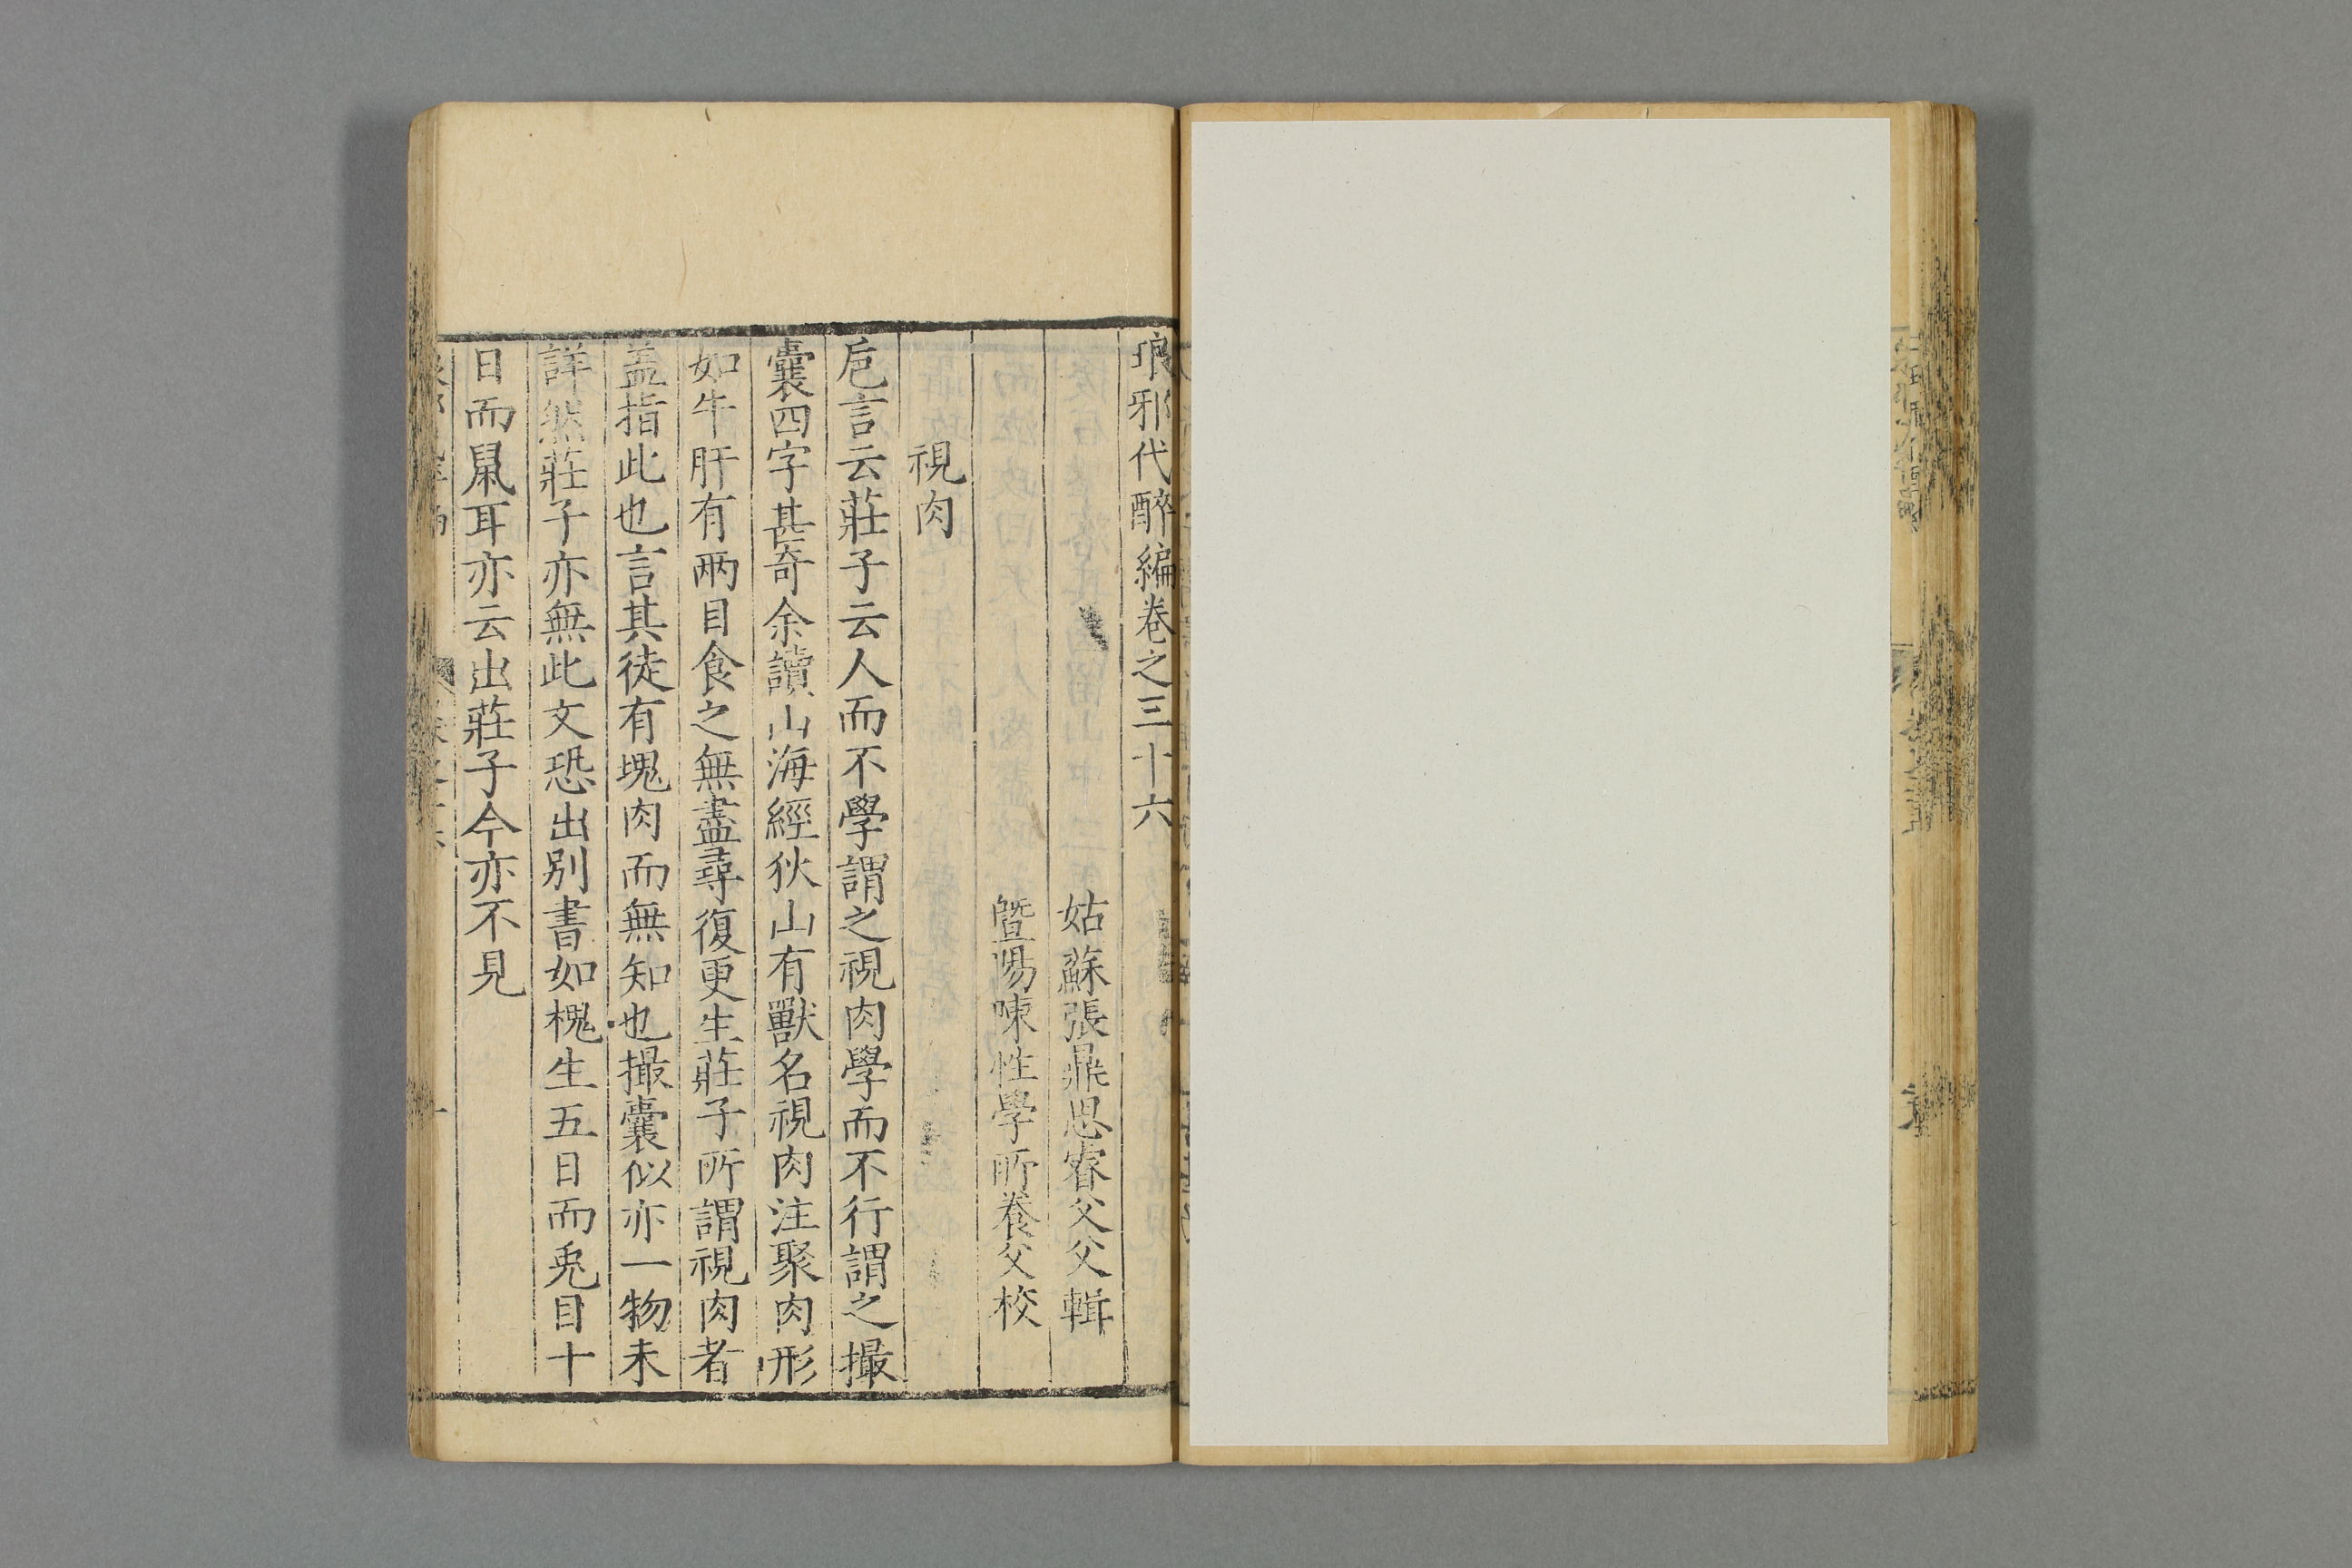 琅邪代醉編卷之三十六
姑蘇張鼎思睿父父輯
暨陽陳性學所養父校
視肉
巵言云莊子云人而不學謂之視肉學而不行謂之撮
囊四字甚奇余讀山海經狄山有獸名視肉注聚肉形
如牛肝有兩目食之無盡尋復更生莊子所謂視肉者
盖指此也言其徒有塊肉而無知也撮囊似亦一物未
詳然莊子亦無此文恐出别書如槐生五日而兎目十
日而鼠耳亦云出莊子今亦不見